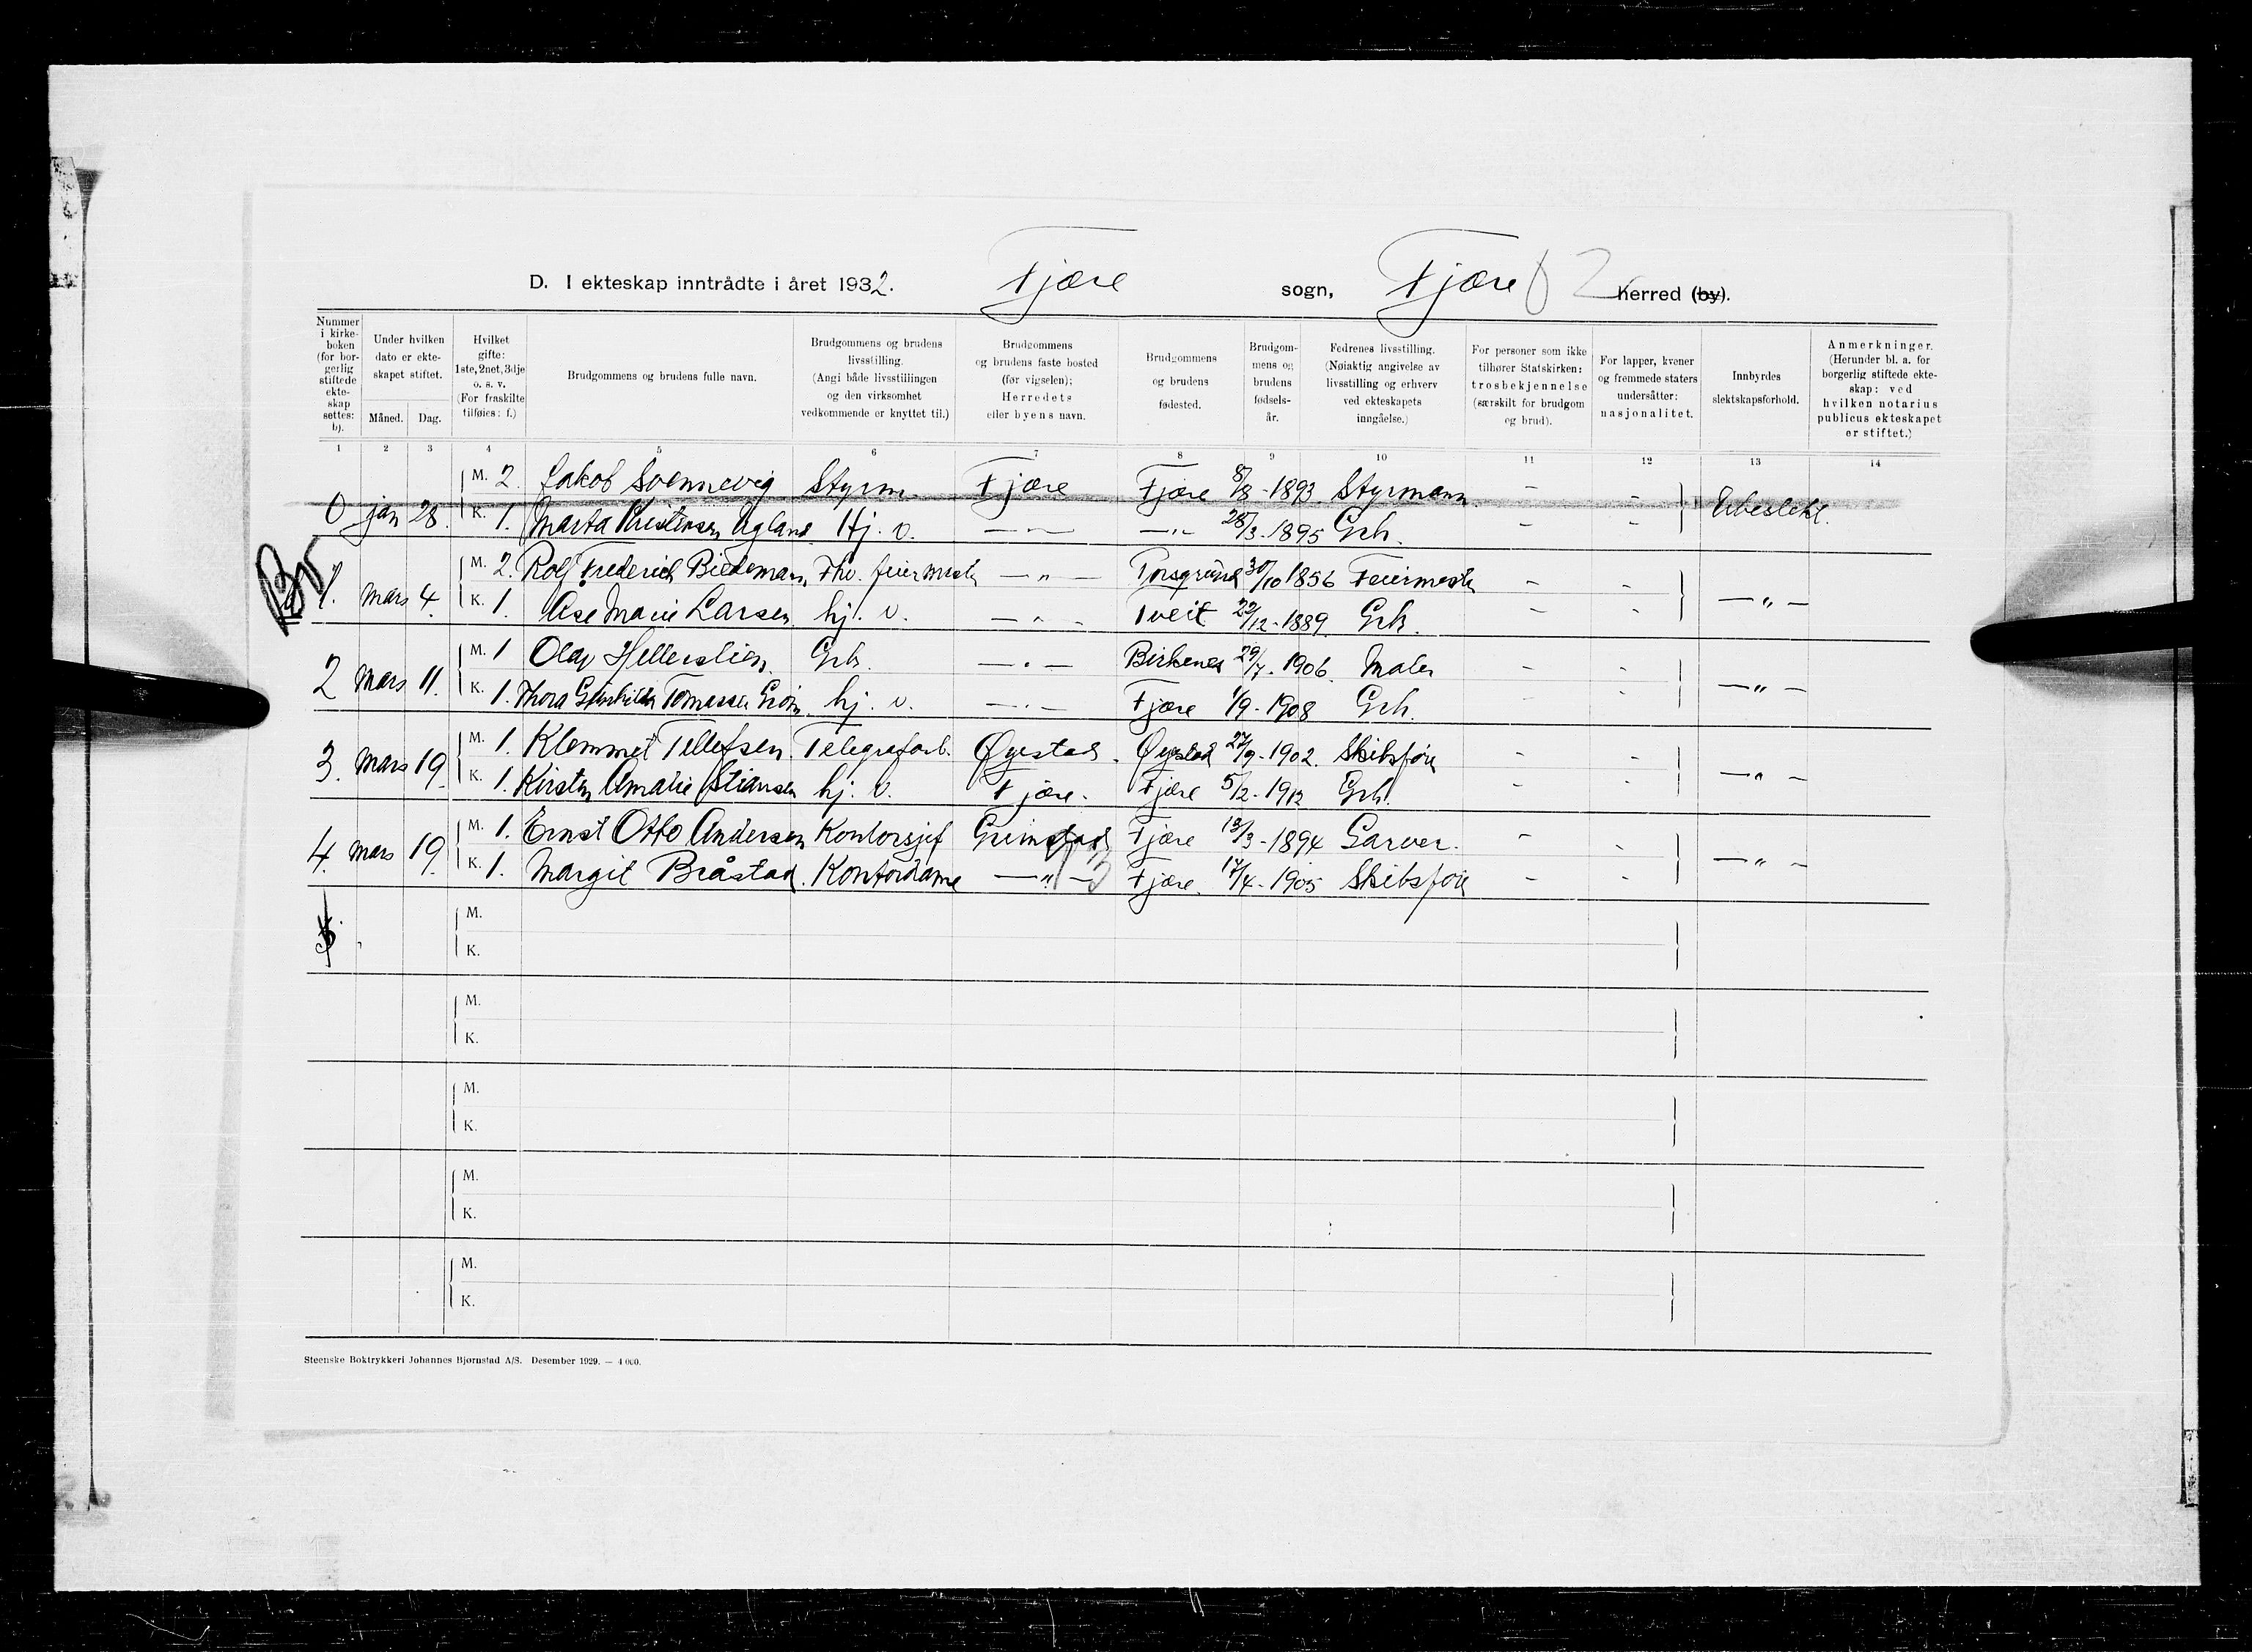 D. I ekteskap inntrådte i året 1932. Fjære sogn, Fjære herred (by).
Nummer i kirkeboken (for borgerlig stiftede ekteskap settes: b). | Under hvilken dato er ekteskapet stiftet. Måned. Dag. | Hvilket gifte: 1ste, 2net, 3dje o. s. v. (For fraskilte tilføies: f.) | Brudgommens og brudens fulle navn. | Brudgommens og brudens livsstilling. (Angi både livsstillingen og den virksomhet vedkommende er knyttet til.) | Brudgommens og brudens faste bosted (før vigselen); Herredets eller byens navn. | Brudgommens og brudens fødested. | Brudgommens og brudens fødselsår. | Fedrenes livsstilling. (Nøiaktig angivelse av livsstilling og erhverv ved ekteskapets inngåelse.) | For personer som ikke tilhører Statskirken: trosbekjennelse (særskilt for brudgom og brud). | For lapper, kvener og fremmede staters undersåtter: nasjonalitet. | Innbyrdes slektskapsforhold. | Anmerkninger. (Herunder bl. a. for borgerlig stiftede ekteskap: ved hvilken notarius publicus ekteskapet er stiftet.)
1 2 3 4 5 6 7 8 9 10 11 12 13 14
M. 2. Jakob Svennevig Styrm. Fjære Fjære 8/8 - 1893 Styrmann - -
0 jan 28. K. 1. Marta Kristensen Ugland Hj. v. — " — — " — 28/3 - 1895 Grb. - - Ubeslekt.
Br
M. 2. Rolf Frederich Biedemann Fhv. feiermestr — " — Porsgrund 30/10 1856 Feiermestr - -
1. Mars 4. K. 1. Åse Marie Larsen hj. v. — " — Tveit 22/12 - 1889. Grb. - - — " —
M. 1 Olav Hellerslien Grb. — " — Birkenes 29/7 - 1906. Maler - -
2 Mars 11. K. 1. Thora Gunhilda Tomassen hj. v. — " — Fjære 1/9 - 1908 Grb. - - — " —
M. 1. Klemmet Tellefsen. Telegrafarb. Øyestad. Øyestad 27/9 - 1902. Skibsfører - -
3. Mars 19. K. 1. Kirsten Amalie Stiansen hj. v. Fjære. Fjære 5/2 - 1912 Grb. - - — " —
M. 1. Ernst Otto Andersen Kontorsjef Grimstad Fjære 13/3 - 1894 Garver. - -
4. Mars 19. K. 1. Margit Bråstad. Kontordame — " — Fjære. 17/4 - 1905 Skibsfører - - — " —
M.
K.
M.
K.
M.
K.
M.
K.
M.
K.
Steenske Boktrykkeri Johannes Bjørnstad A/S. Desember 1929. — 4 000.